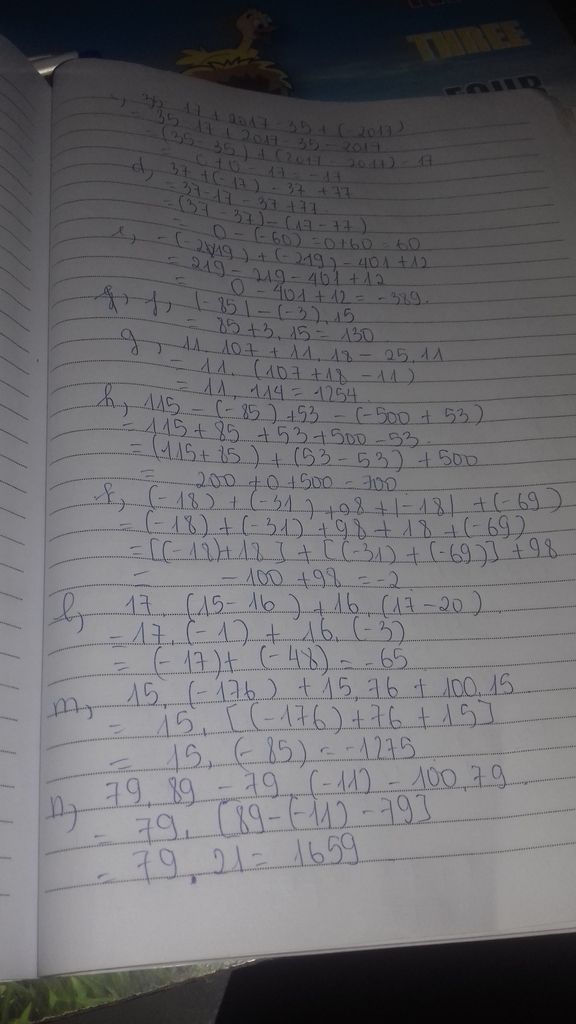 THREE
FOUR
c, 35 - 17 + 2017 - 35 + (-2017)
= 35 - 17 + 2017 - 35 - 2017
= (35 - 35) + (2017 - 2017) - 17
= 0 + 0 - 17 = -17
d, 37 + (-17) - 37 + 77
= 37 - 17 - 37 + 77
= (37 - 37) - (17 - 77)
= 0 - (-60) = 0 + 60 = 60
-(-219) + (-219) - 401 + 12
= 219 - 219 - 401 + 12
= 0 - 401 + 12 = -389.
f, |-85| - (-3). 15
= 85 + 3. 15 = 130
g, 11. 107 + 11. 18 - 25. 11
= 11. (107 + 18 - 11)
= 11. 114 = 1254
h, 115 - (-85) + 53 - (-500 + 53)
= 115 + 85 + 53 + 500 - 53
= (115 + 85) + (53 - 53) + 500
= 200 + 0 + 500 = 700
k, (-18) + (-31) + 98 + |-18| + (-69)
= (-18) + (-31) + 98 + 18 + (-69)
= [(-18) + 18] + [(-31) + (-69)] + 98
= -100 + 98 = -2
l, 17. (15 - 16) + 16. (17 - 20)
= 17. (-1) + 16. (-3)
= (-17) + (-48) = -65
m, 15. (-176) + 15. 76 + 100. 15
= 15. [(-176) + 76 + 15]
= 15. (-85) = -1275
n, 79. 89 - 79. (-11) - 100. 79
= 79. [89 - (-11) - 79]
= 79. 21 = 1659